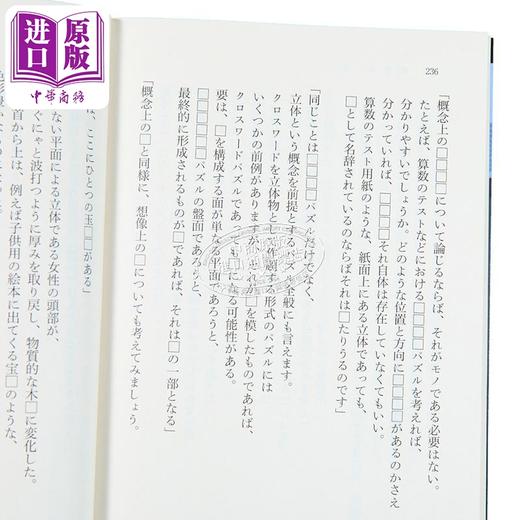 进口原版
中华商务
236
「概念上の□□□□について論じるならば、それがモノである必要はない。
たとえば、算数のテストなどにおける□□□□パズルを考えれば、
分かりやすいでしょうか。どのような位置と方向に□□□□があるのかさえ
分かっていれば、□□□□それ自体は存在していなくてもいい。
算数のテスト用紙のような、紙面上にある立体であっても、
□として名辞されているのならばそれは□たりうるのです」
「同じことは□□□□パズルだけでなく、
立体という概念を前提とするパズル全般にも言えます。
クロスワードを立体物として作題する形式のパズルには
いくつかの前例がありますが、それが□を模したものであれば、
クロスワードパズルであっても□になる可能性がある。
要は、□を構成する面が単なる平面であろうと、
□□□□パズルの盤面であろうと、
最終的に形成されるものが□であれば、それは□の一部となる」
「概念上の□と同様に、想像上の□についても考えてみましょう。
は、ここにひとつの玉□□がある」
ない平面による立体である女性の頭部が、
ぐにゃと波打つように厚みを取り戻し、物質的な木□に変化した。
首から上は、例えば子供用の絵本に出てくる宝□のような、